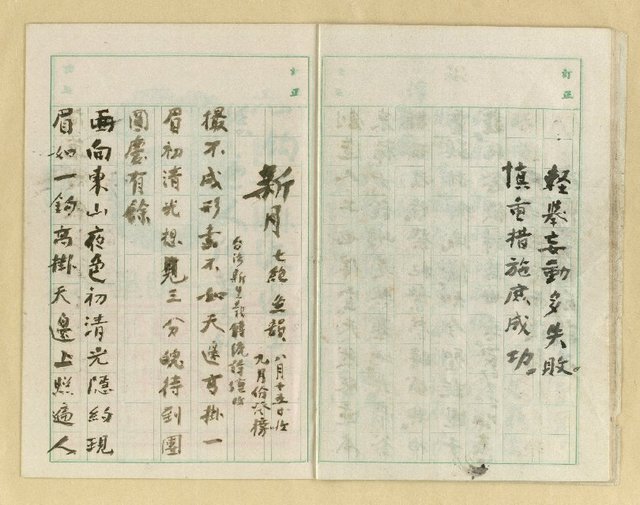 訂正
輕舉妄動多失敗。
慎重措施庶成功。
訂正
新月 七絕 魚韻 八月十五日收
九月份發榜
台灣新生報傳統詩壇收
撮不成形畫不如天邊高掛一
眉初清光想見三分魄待到團
圓慶有餘
面向東山夜色初清光隱約現
眉如一鉤高掛天邊上照遍人
訂正